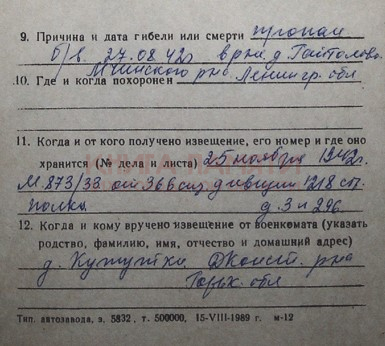 9. Причина и дата гибели или смерти пропал
б/в. 27.08.42г в р-не д. Гайтолово
Мгинского р-на Ленингр. обл
10. Где и когда похоронен
11. Когда и от кого получено извещение, его номер и где оно
хранится (№ дела и листа) 25 ноября 1942г.
873/33 от 366 дивизии 1218 сп.
полка д. 3 л 296
12. Когда и кому вручено извещение от военкомата (указать
родство, фамилию, имя, отчество и домашний адрес)
д. р-на
Горьк. обл
Тип. автозавода, з. 5832, т. 500000, 15-VIII-1989 г. м-12